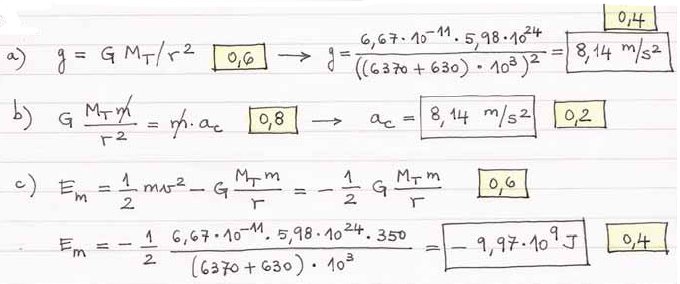 0,4
a) g = G M_T/r² 0,6 → g = 6,67·10⁻¹¹·5,98·10²⁴ / ((6370 + 630)·10³)² = 8,14 m/s²
b) G M_T m / r² = m·a_c 0,8 → a_c = 8,14 m/s² 0,2
c) E_m = 1/2 mv² − G M_T m / r = − 1/2 G M_T m / r 0,6
E_m = − 1/2 6,67·10⁻¹¹·5,98·10²⁴·350 / (6370 + 630)·10³ = − 9,97·10⁹ J 0,4